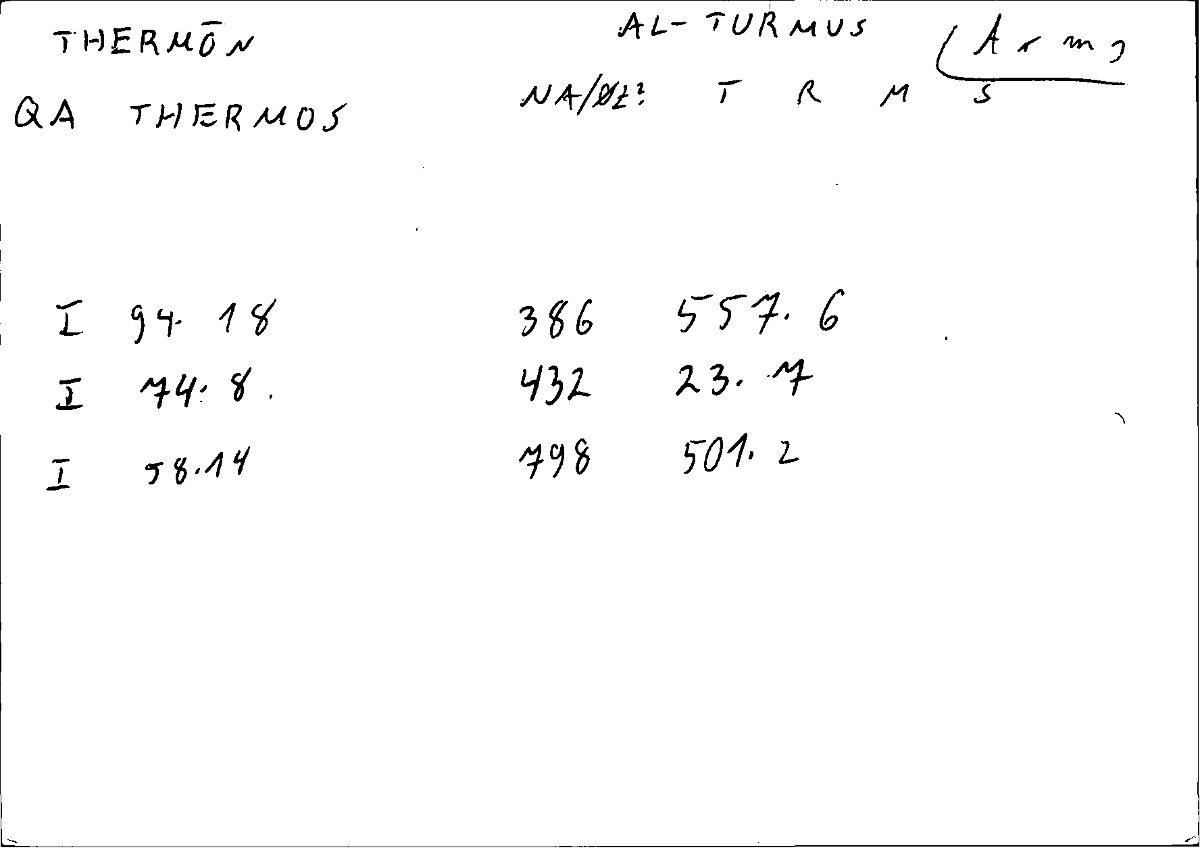 THERMŌN AL-TURMUS
QA THERMOS NA/ T R M S
I 94. 18 386 557. 6
I 74. 8. 432 23. 7
I 58.14 798 501. 2